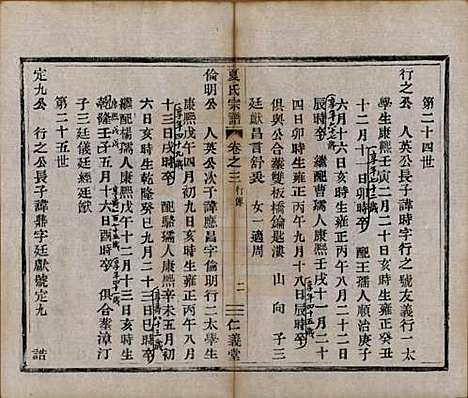 第二十四世
行之公　人英公長子諱時字行之號友義行一太
學生康熙壬寅二月二十日亥時生雍正癸丑
十二月十一日辰時卒　配王孺人順治庚子
六月十六日亥時生雍正丙午八月二十二日
辰時卒　繼配曹孺人康熙壬戌十一月二十
四日卯時生雍正丙午九月十八日辰時卒
俱與公合葬雙板橋鑰匙漊　山　向　子三
廷獻昌言舒奂　女一適周
夏氏宗譜　卷之三　行傳　二　仁義堂
倫明公　人英公次子諱應昌字倫明行二太學生
康熙戊午四月初九日亥時生雍正丙午八月
十三日時卒　配駱孺人康熙辛未五月初
六日亥時生乾隆癸巳九月二十日亥時卒
繼配楊孺人康熙六月二十三日亥時生
乾隆壬子五月十六日酉時卒　俱合葬漳汀
子三廷儀廷經廷猷
第二十五世
定九公　行之公長子諱鼎字廷獻號定九　誥